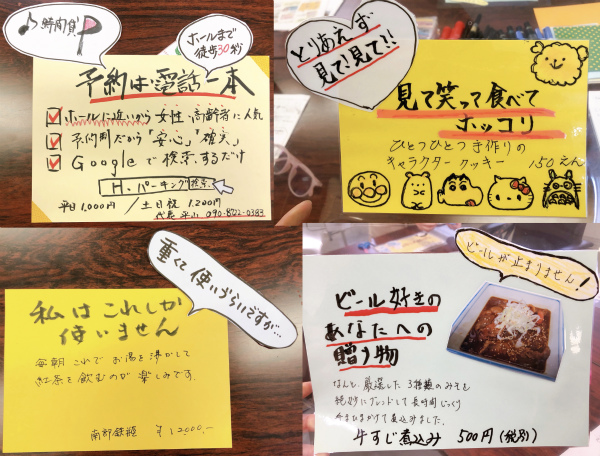 ♪時間貸P
ホールまで
徒歩30秒
予約は電話一本
ホールに近いから 女性、高齢者に人気
予約制だから「安心」「確実」
Googleで検索するだけ
H.パーキング 検索
平日1,000円 / 土日祝 1,200円
代表 平山 090-8122-0383
とりあえず
見て!見て!!
見て笑って食べて
ホッコリ
ひとつひとつ手作りの
キャラクタークッキー 150えん
重くて使いづらいですが…
私はこれしか
使いません
毎朝これでお湯を沸かして
紅茶を飲むのが楽しみです。
南部鉄瓶 ¥12000.-
ビールが止まりません!
ビール好きの
あなたへの
贈り物
なんと、厳選した3種類のみそを
絶妙にブレンドして長時間じっくり
手まひまかけて煮込みました。
牛すじ煮込み 500円(税別)